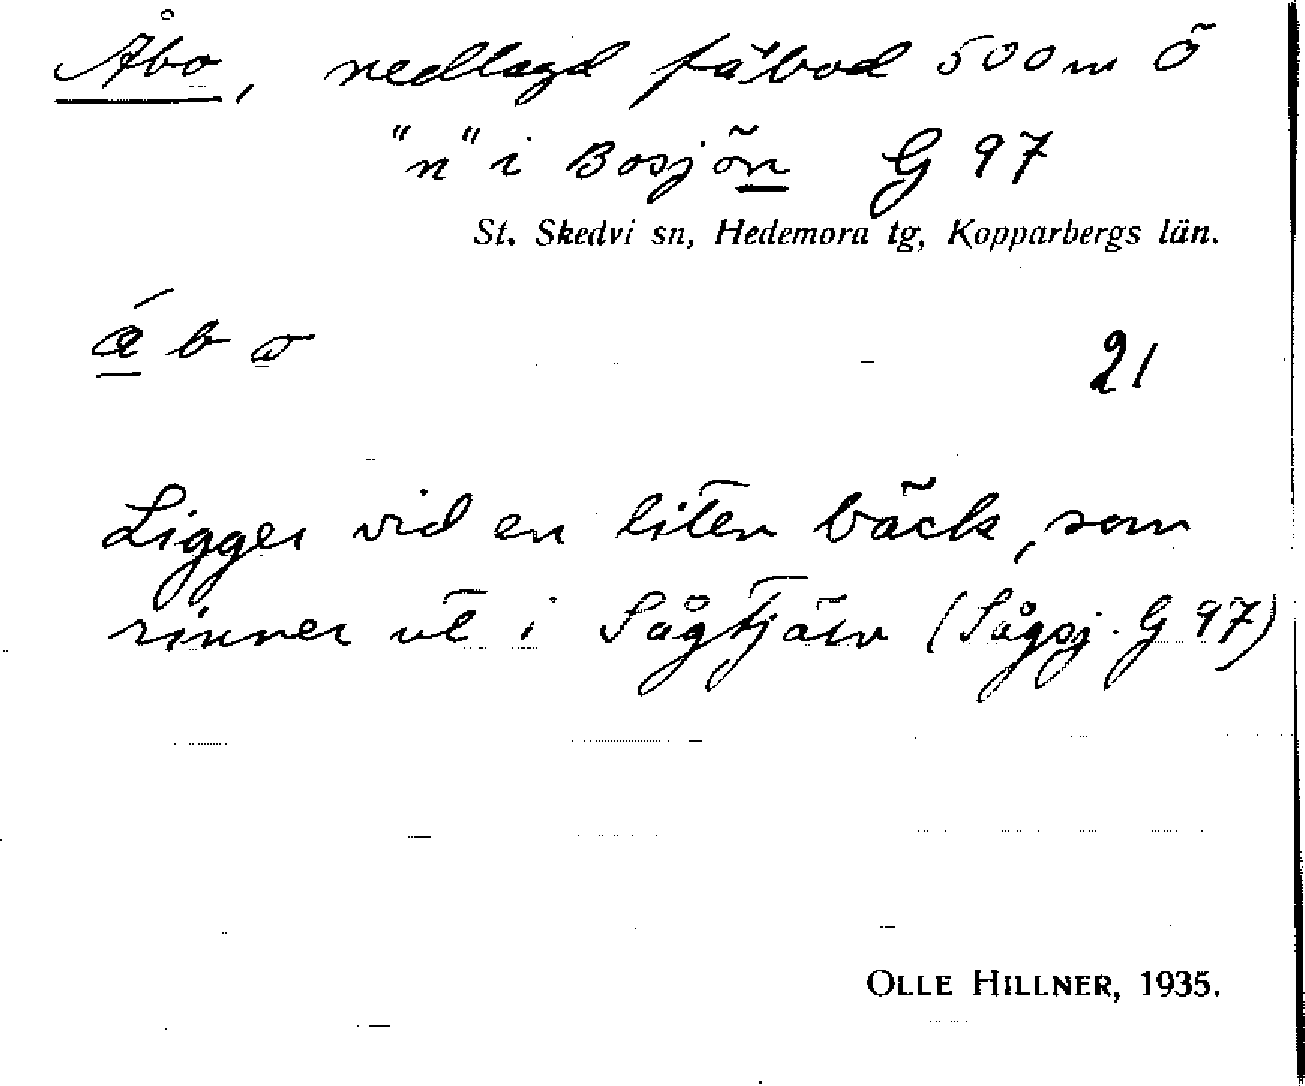 Åbo, nedlagd fäbod 500 m Ö
"n" i Bosjön G 97
St. Skedvi sn, Hedemora tg, Kopparbergs län.
21
Ligger vid en liten bäck, som
rinner ut i Sågtjärn (Sågsj. G 97)
OLLE HILLNER, 1935.